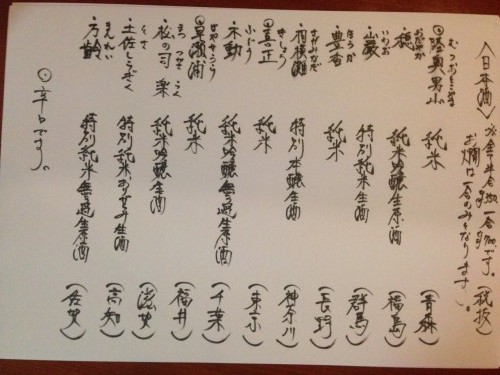 〈日本酒〉 半合350 一合700です。(税抜)
お燗は一合のみとなります。
むつおとこやま
◎陸奥男山 純米 (青森)
おだやか
・穏 純米吟醸生原酒 (福島)
いわお
・巌 特別純米生酒 (群馬)
ほうか
・豊香 純米 (長野)
さがみなだ
・相模灘 特別本醸生酒 (神奈川)
きしょう
◎喜正 純米 (東京)
ふどう
・不動 純米吟醸無ろ過生原酒 (千葉)
はやせうら
◎早瀬浦 純米 (福井)
まつ つかさ らく
・松の司 楽 純米吟醸生酒 (滋賀)
とさ
・土佐しらぎく 特別純米おりがらみ生酒 (高知)
まんれい
・万齢 特別純米無ろ過生原酒 (佐賀)
◎辛口です。